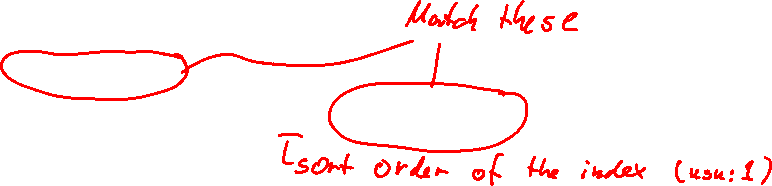 Match these
sort order of the index (usu: 1)